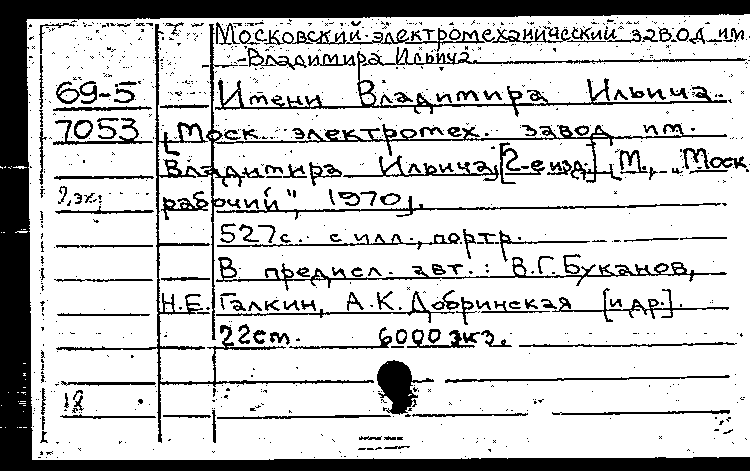 Московский электромеханический завод им.
Владимира Ильича.
69-5 Имени Владимира Ильича.
7053 [Моск. электромех. завод им.
Владимира Ильича]. [2-е изд.] [М., "Моск.
2 экз рабочий", 1970].
527с. с илл., портр.
В предисл. авт.: В.Г.Буканов,
Н.Е. Галкин, А.К.Добринская [и др].
22см. 6000 экз.
18